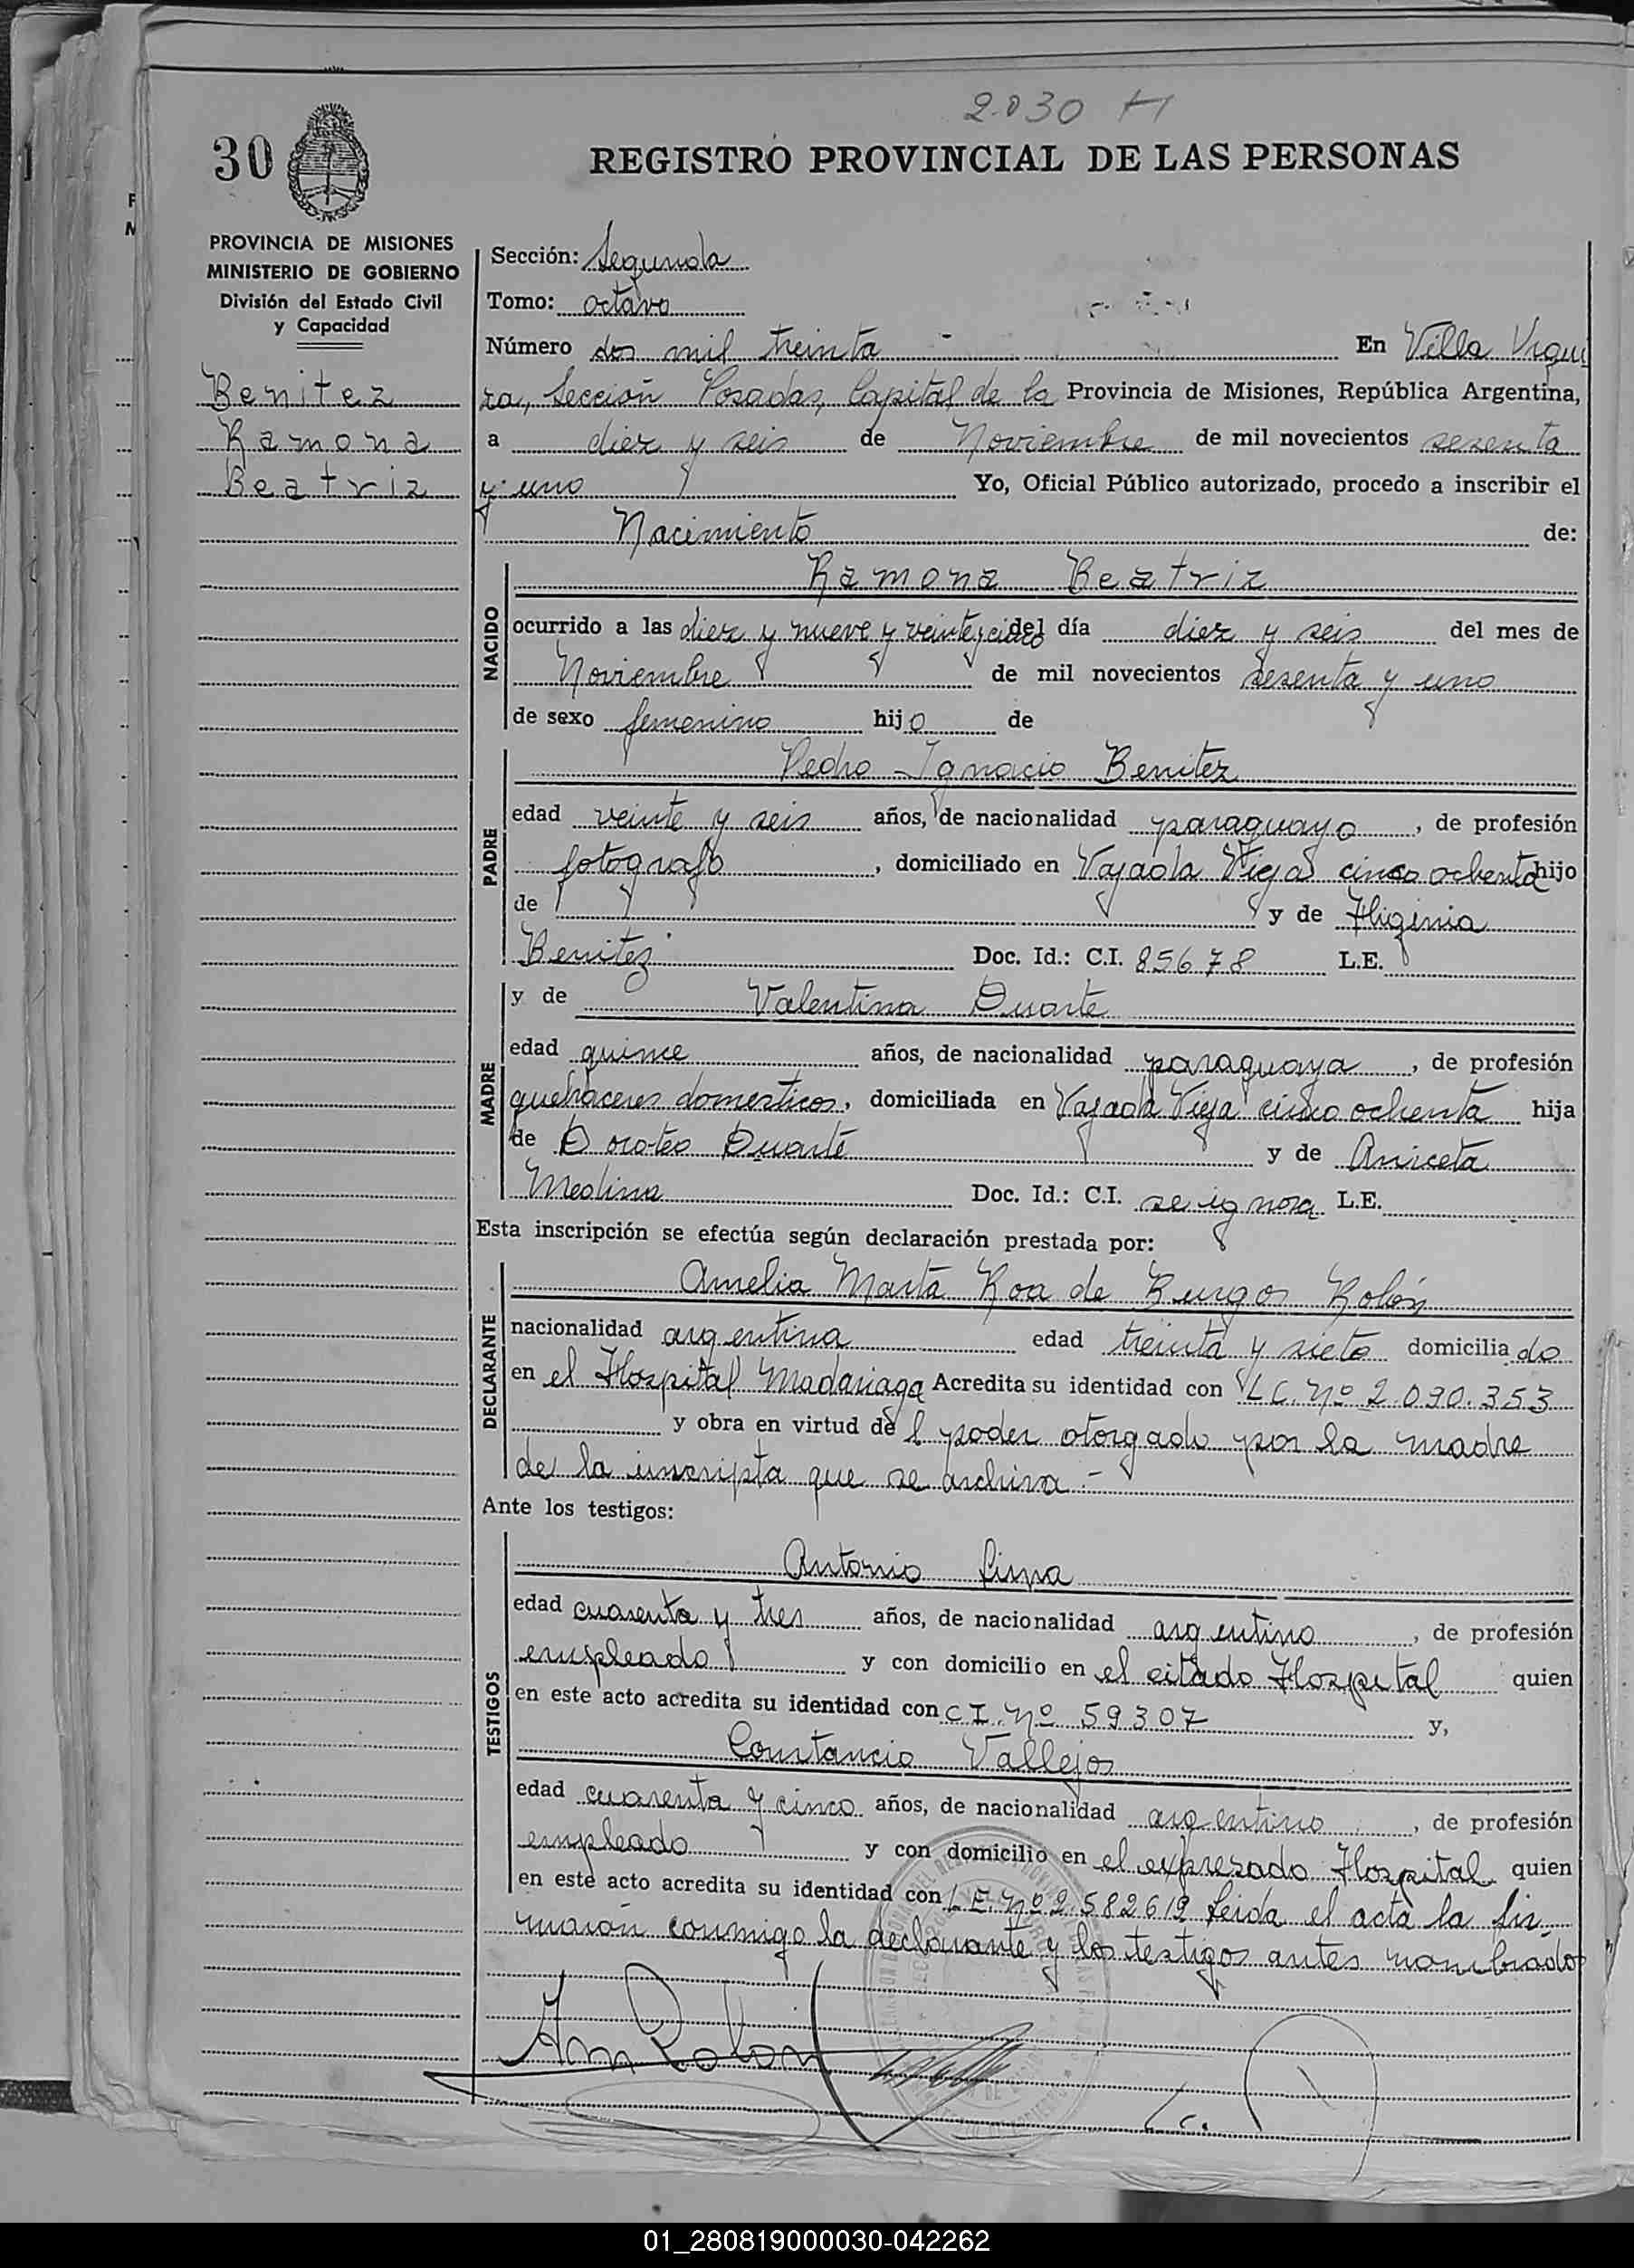 2.030 H
30
REGISTRO PROVINCIAL DE LAS PERSONAS
PROVINCIA DE MISIONES
MINISTERIO DE GOBIERNO
División del Estado Civil
y Capacidad
Benitez
Ramona
Beatriz
Sección: Segunda
Tomo: octavo
Número dos mil treinta En Villa Urqui
za, Sección Posadas, Capital de la Provincia de Misiones, República Argentina,
a diez y seis de Noviembre de mil novecientos sesenta
y uno Yo, Oficial Público autorizado, procedo a inscribir el
Nacimiento de:
NACIDO
Ramona Beatriz
ocurrido a las diez y nueve y veinte y cinco del día diez y seis del mes de
Noviembre de mil novecientos sesenta y uno
de sexo femenino hijo de
PADRE
Pedro Ignacio Benitez
edad veinte y seis años, de nacionalidad paraguayo, de profesión
fotografo, domiciliado en Vajada Vieja cinco ochenta hijo
de y de Higinia
Benitez Doc. Id.: C.I. 85678 L.E.
MADRE
y de Valentina Duarte
edad quince años, de nacionalidad paraguaya, de profesión
quehaceres domesticos, domiciliada en Vajada Vieja cinco ochenta hija
de Doroteo Duarte y de Aniceta
Medina Doc. Id.: C.I. se ignora L.E.
Esta inscripción se efectúa según declaración prestada por:
DECLARANTE
Amelia Marta Roa de Burgos Rolón
nacionalidad argentina edad treinta y siete domiciliado
en el Hospital Madariaga Acredita su identidad con L C. Nº 2.090.353
y obra en virtud del poder otorgado por la madre
de la inscripta que se archiva.-
Ante los testigos:
TESTIGOS
Antonio Lima
edad cuarenta y tres años, de nacionalidad argentino, de profesión
empleado y con domicilio en el citado Hospital quien
en este acto acredita su identidad con C I. Nº 59307 y,
Constancio Vallejos
edad cuarenta y cinco años, de nacionalidad argentino, de profesión
empleado y con domicilio en el expresado Hospital quien
en este acto acredita su identidad con L E. Nº 2.582619 Leida el acta la fir
maron conmigo la declarante y los testigos antes nombrados
Am Rolon
01_280819000030-042262